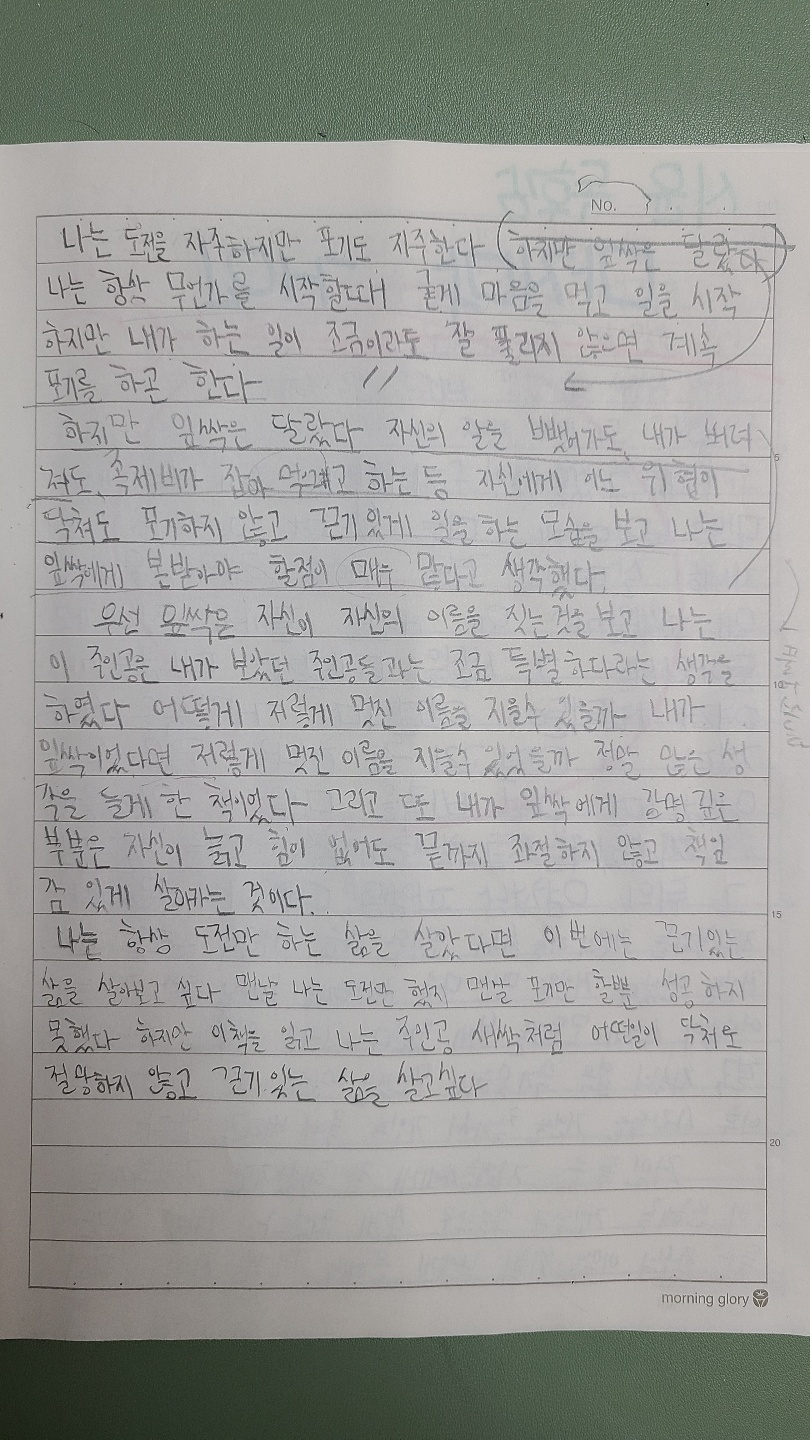 NO.
나는 도전을 자주하지만 포기도 자주한다 하지만 잎싹은 달랐다
나는 항상 무언가를 시작할때 굳게 마음을 먹고 일을 시작
하지만 내가 하는 일이 조금이라도 잘 풀리지 않으면 계속
포기를 하곤 한다
하지만 잎싹은 달랐다 자신의 알을 뺏어가도, 내가
저도, 족제비가 잡아 먹으려고 하는 등 자신에게 어느 위협이
닥쳐도 포기하지 않고 끈기있게 일을 하는 모습을 보고 나는
잎싹에게 본받아야 할점이 매우 많다고 생각했다.
우선 잎싹은 자신이 자신의 이름을 짓는것을 보고 나는
이 주인공은 내가 보았던 주인공들과는 조금 특별하다라는 생각을
하였다 어떻게 저렇게 멋진 이름을 지을수 있을까 내가
잎싹이었다면 저렇게 멋진 이름을 지을수 있었을까 정말 많은 생
각을 들게 한 책이었다 그리고 또 내가 잎싹에게 감명 깊은
부분은 자신이 늙고 힘이 없어도 끝까지 좌절하지 않고 책임
감 있게 살아가는 것이다.
나는 항상 도전만 하는 삶을 살았다면 이번에는 끈기있는
삶을 살아보고 싶다 맨날 나는 도전만 했지 맨날 포기만 할뿐 성공하지
못했다 하지만 이책을 읽고 나는 주인공 새싹처럼 어떤일이 닥쳐도
절망하지 않고 끈기있는 삶을 살고싶다
5
10
15
20
morning glory